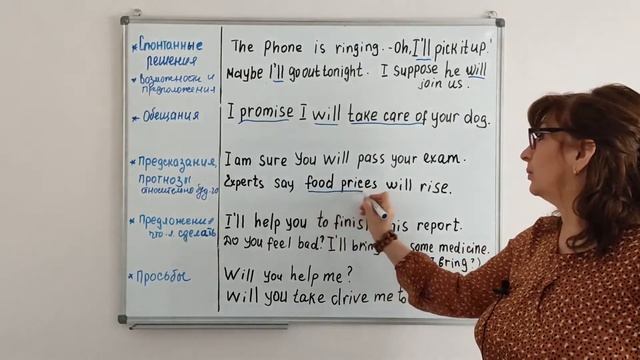 * Спонтанные решения
The Phone is ringing. -Oh, I'll pick it up.
* Возможности и предположения
Maybe I'll go out tonight. I suppose he will join us.
* Обещания
I promise I will take care of your dog.
* Предсказания,
I am sure You will pass your exam.
прогнозы
Experts say food prices will rise.
относительно
* Предложение
I'll help you to finish this report.
что-л. сделать
Do you feel bad? I'll bring some medicine.
bring?)
* Просьбы
Will you help me?
Will you take drive me to